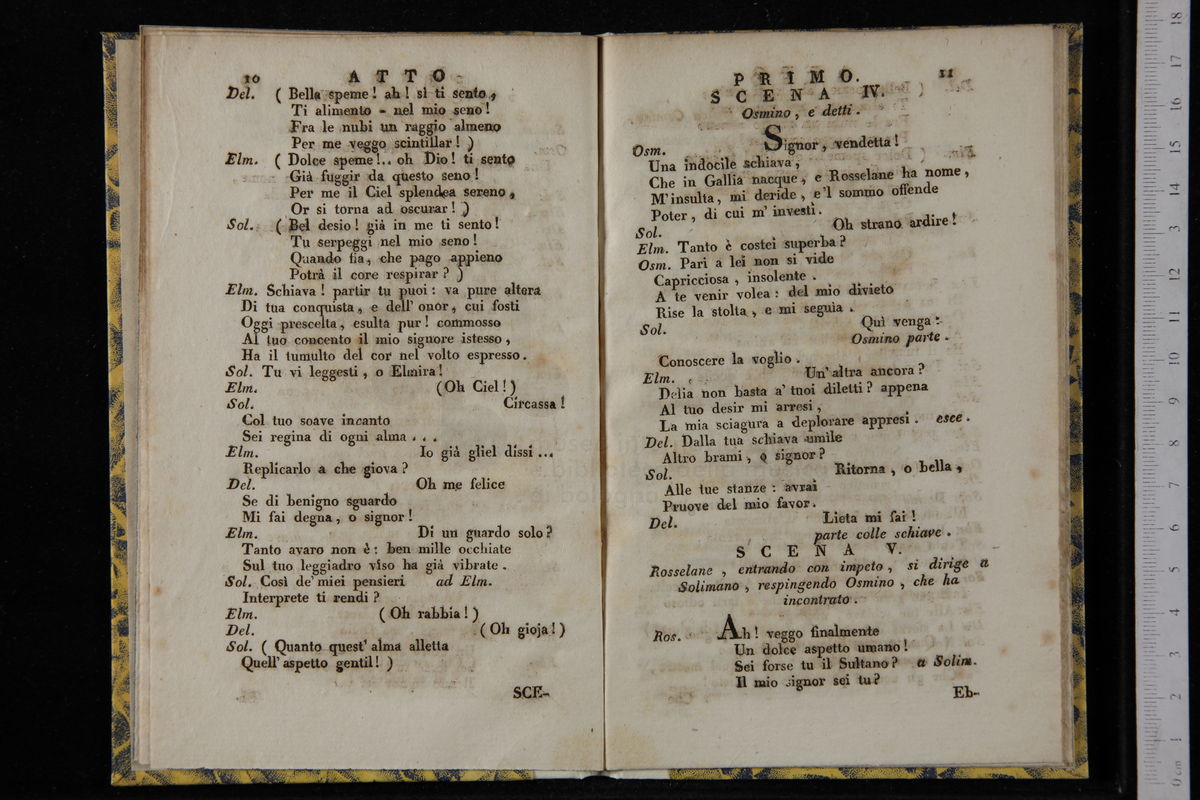 10 ATTO
Del. ( Bella speme! ah! sì ti sento,
Ti alimento - nel mio seno!
Fra le nubi un raggio almeno
Per me veggo scintillar! )
Elm. ( Dolce speme!.. oh Dio! ti sento
Già fuggir da questo seno!
Per me il Ciel splendea sereno,
Or si torna ad oscurar! )
Sol. ( Bel desio! già in me ti sento!
Tu serpeggi nel mio seno!
Quando fia, che pago appieno
Potrà il core respirar? )
Elm. Schiava! partir tu puoi: va pure altera
Di tua conquista, e dell' onor, cui fosti
Oggi prescelta, esulta pur! commosso
Al tuo concento il mio signore istesso,
Ha il tumulto del cor nel volto espresso.
Sol. Tu vi leggesti, o Elmira!
Elm. (Oh Ciel!)
Sol. Circassa!
Col tuo soave incanto
Sei regina di ogni alma ...
Elm. Io già gliel dissi ...
Replicarlo a che giova?
Del. Oh me felice
Se di benigno sguardo
Mi fai degna, o signor!
Elm. Di un guardo solo?
Tanto avaro non è: ben mille occhiate
Sul tuo leggiadro viso ha già vibrate.
Sol. Così de' miei pensieri ad Elm.
Interprete ti rendi?
Elm. (Oh rabbia!)
Del. (Oh gioja!)
Sol. ( Quanto quest' alma alletta
Quell' aspetto gentil! )
SCE-
PRIMO. 11
SCENA IV.
Osmino, e detti.
Osm. Signor, vendetta!
Una indocile schiava,
Che in Gallia nacque, e Rosselane ha nome,
M'insulta, mi deride, e'l sommo offende
Poter, di cui m' investi.
Sol. Oh strano ardire!
Elm. Tanto è costei superba?
Osm. Pari a lei non si vide
Capricciosa, insolente.
A te venir volea: del mio divieto
Rise la stolta, e mi seguìa.
Sol. Quì venga:
Osmino parte.
Conoscere la voglio.
Elm. Un' altra ancora?
Delia non basta a' tuoi diletti? appena
Al tuo desir mi arresi,
La mia sciagura a deplorare appresi. esce.
Del. Dalla tua schiava umile
Altro brami, o signor?
Sol. Ritorna, o bella,
Alle tue stanze: avrai
Pruove del mio favor.
Del. Lieta mi fai!
parte colle schiave.
SCENA V.
Rosselane, entrando con impeto, si dirige a
Solimano, respingendo Osmino, che ha
incontrato.
Ros. Ah! veggo finalmente
Un dolce aspetto umano!
Sei forse tu il Sultano? a Solim.
Il mio signor sei tu?
Eb-
0 cm 1 2 3 4 5 6 7 8 9 10 11 12 13 14 15 16 17 18